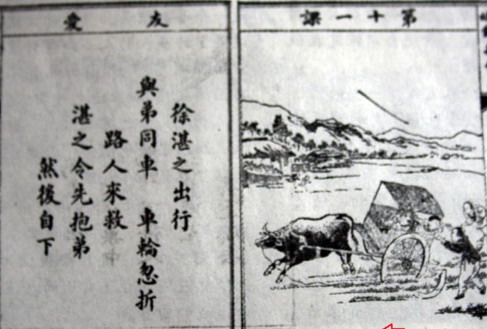 第十一課
友愛
徐湛之出行
與弟同車 車輪忽折
路人來救
湛之令先抱弟
然後自下